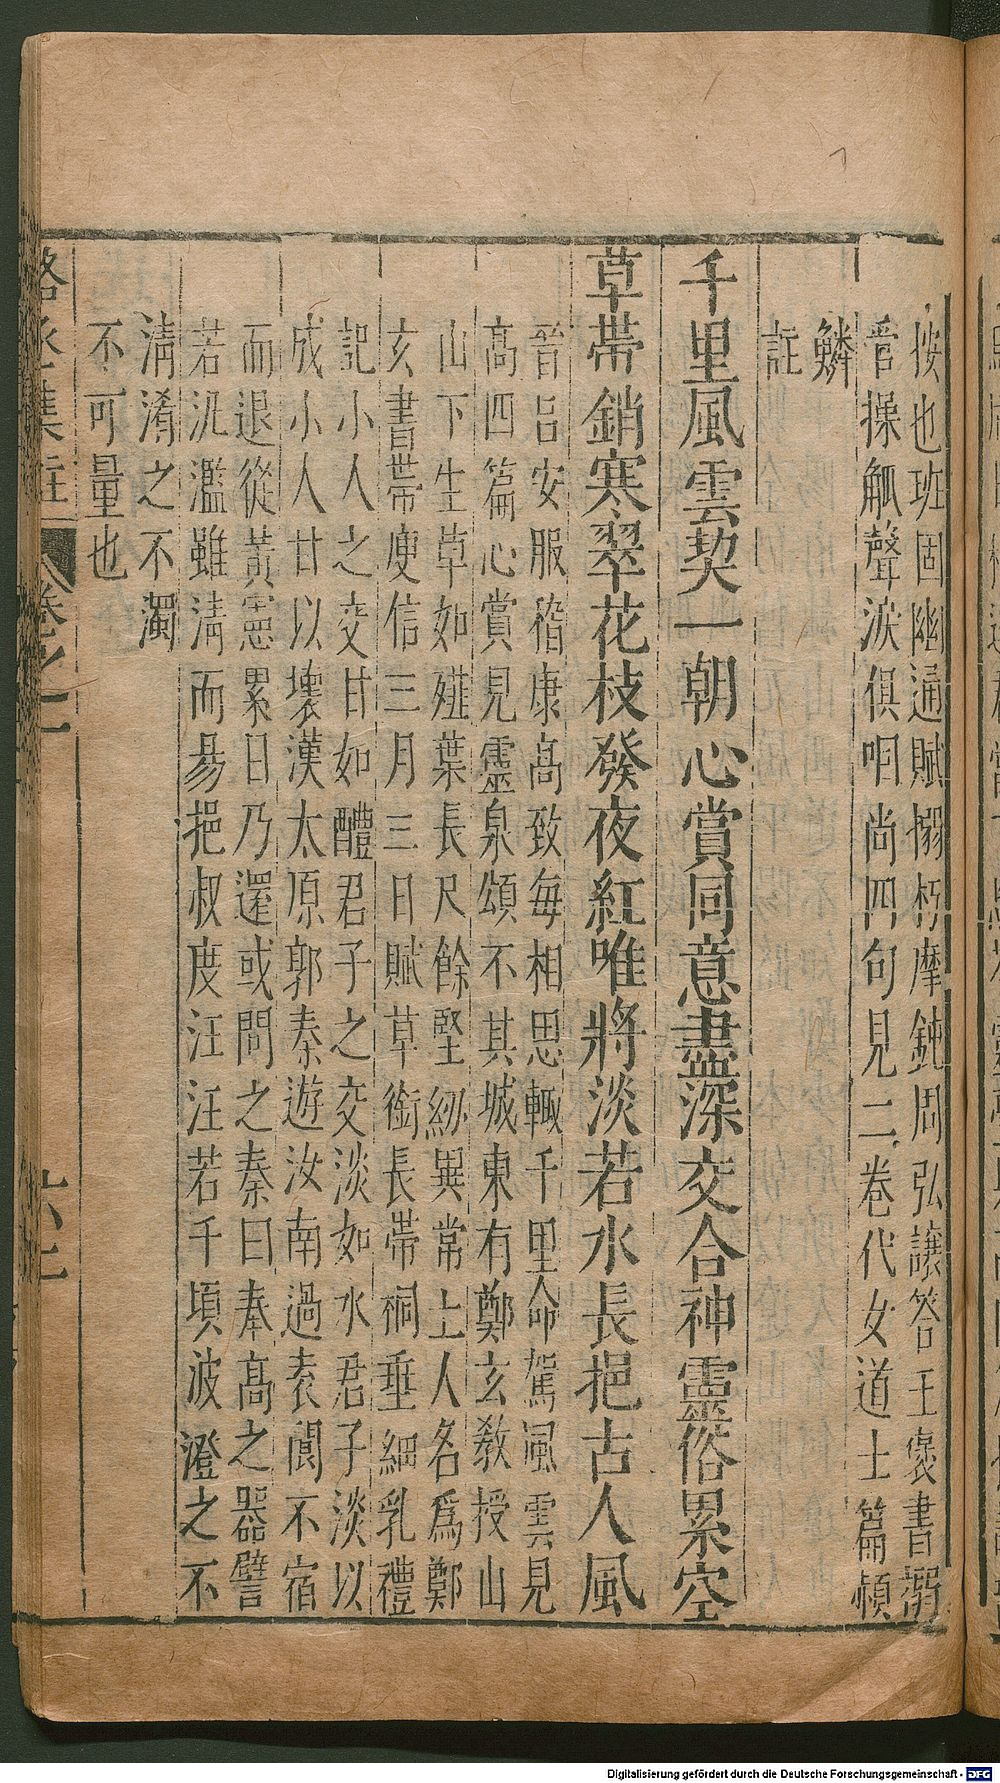 按也班固幽通賦搦朽摩鈍周弘讓答王褒書搦
管操觚聲淚俱咽尚四句見二卷代女道士篇頳
鱗
註
千里風雲契一朝心賞同意盡深交合神靈俗累空
草帶銷寒翠花枝發夜紅唯將淡若水長挹古人風
晉呂安服嵇康高致每相思輒千里命駕風雲見
高四篇心賞見靈泉頌不其城東有鄭玄教授山
山下生草如薤葉長尺餘堅紉異常土人名為鄭
玄書帶庾信三月三日賦草銜長帶桐垂細乳禮
記小人之交甘如醴君子之交淡如水君子淡以
成小人甘以壞漢太原郭泰遊汝南過袁閬不宿
而退從黃憲累日乃還或問之泰曰奉高之器譬
若汎濫雖淸而易挹叔度汪汪若千頃波澄之不
淸淆之不濁
不可量也
駱丞集註 卷之二
六十
Digitalisierung gefördert durch die Deutsche Forschungsgemeinschaft - DFG